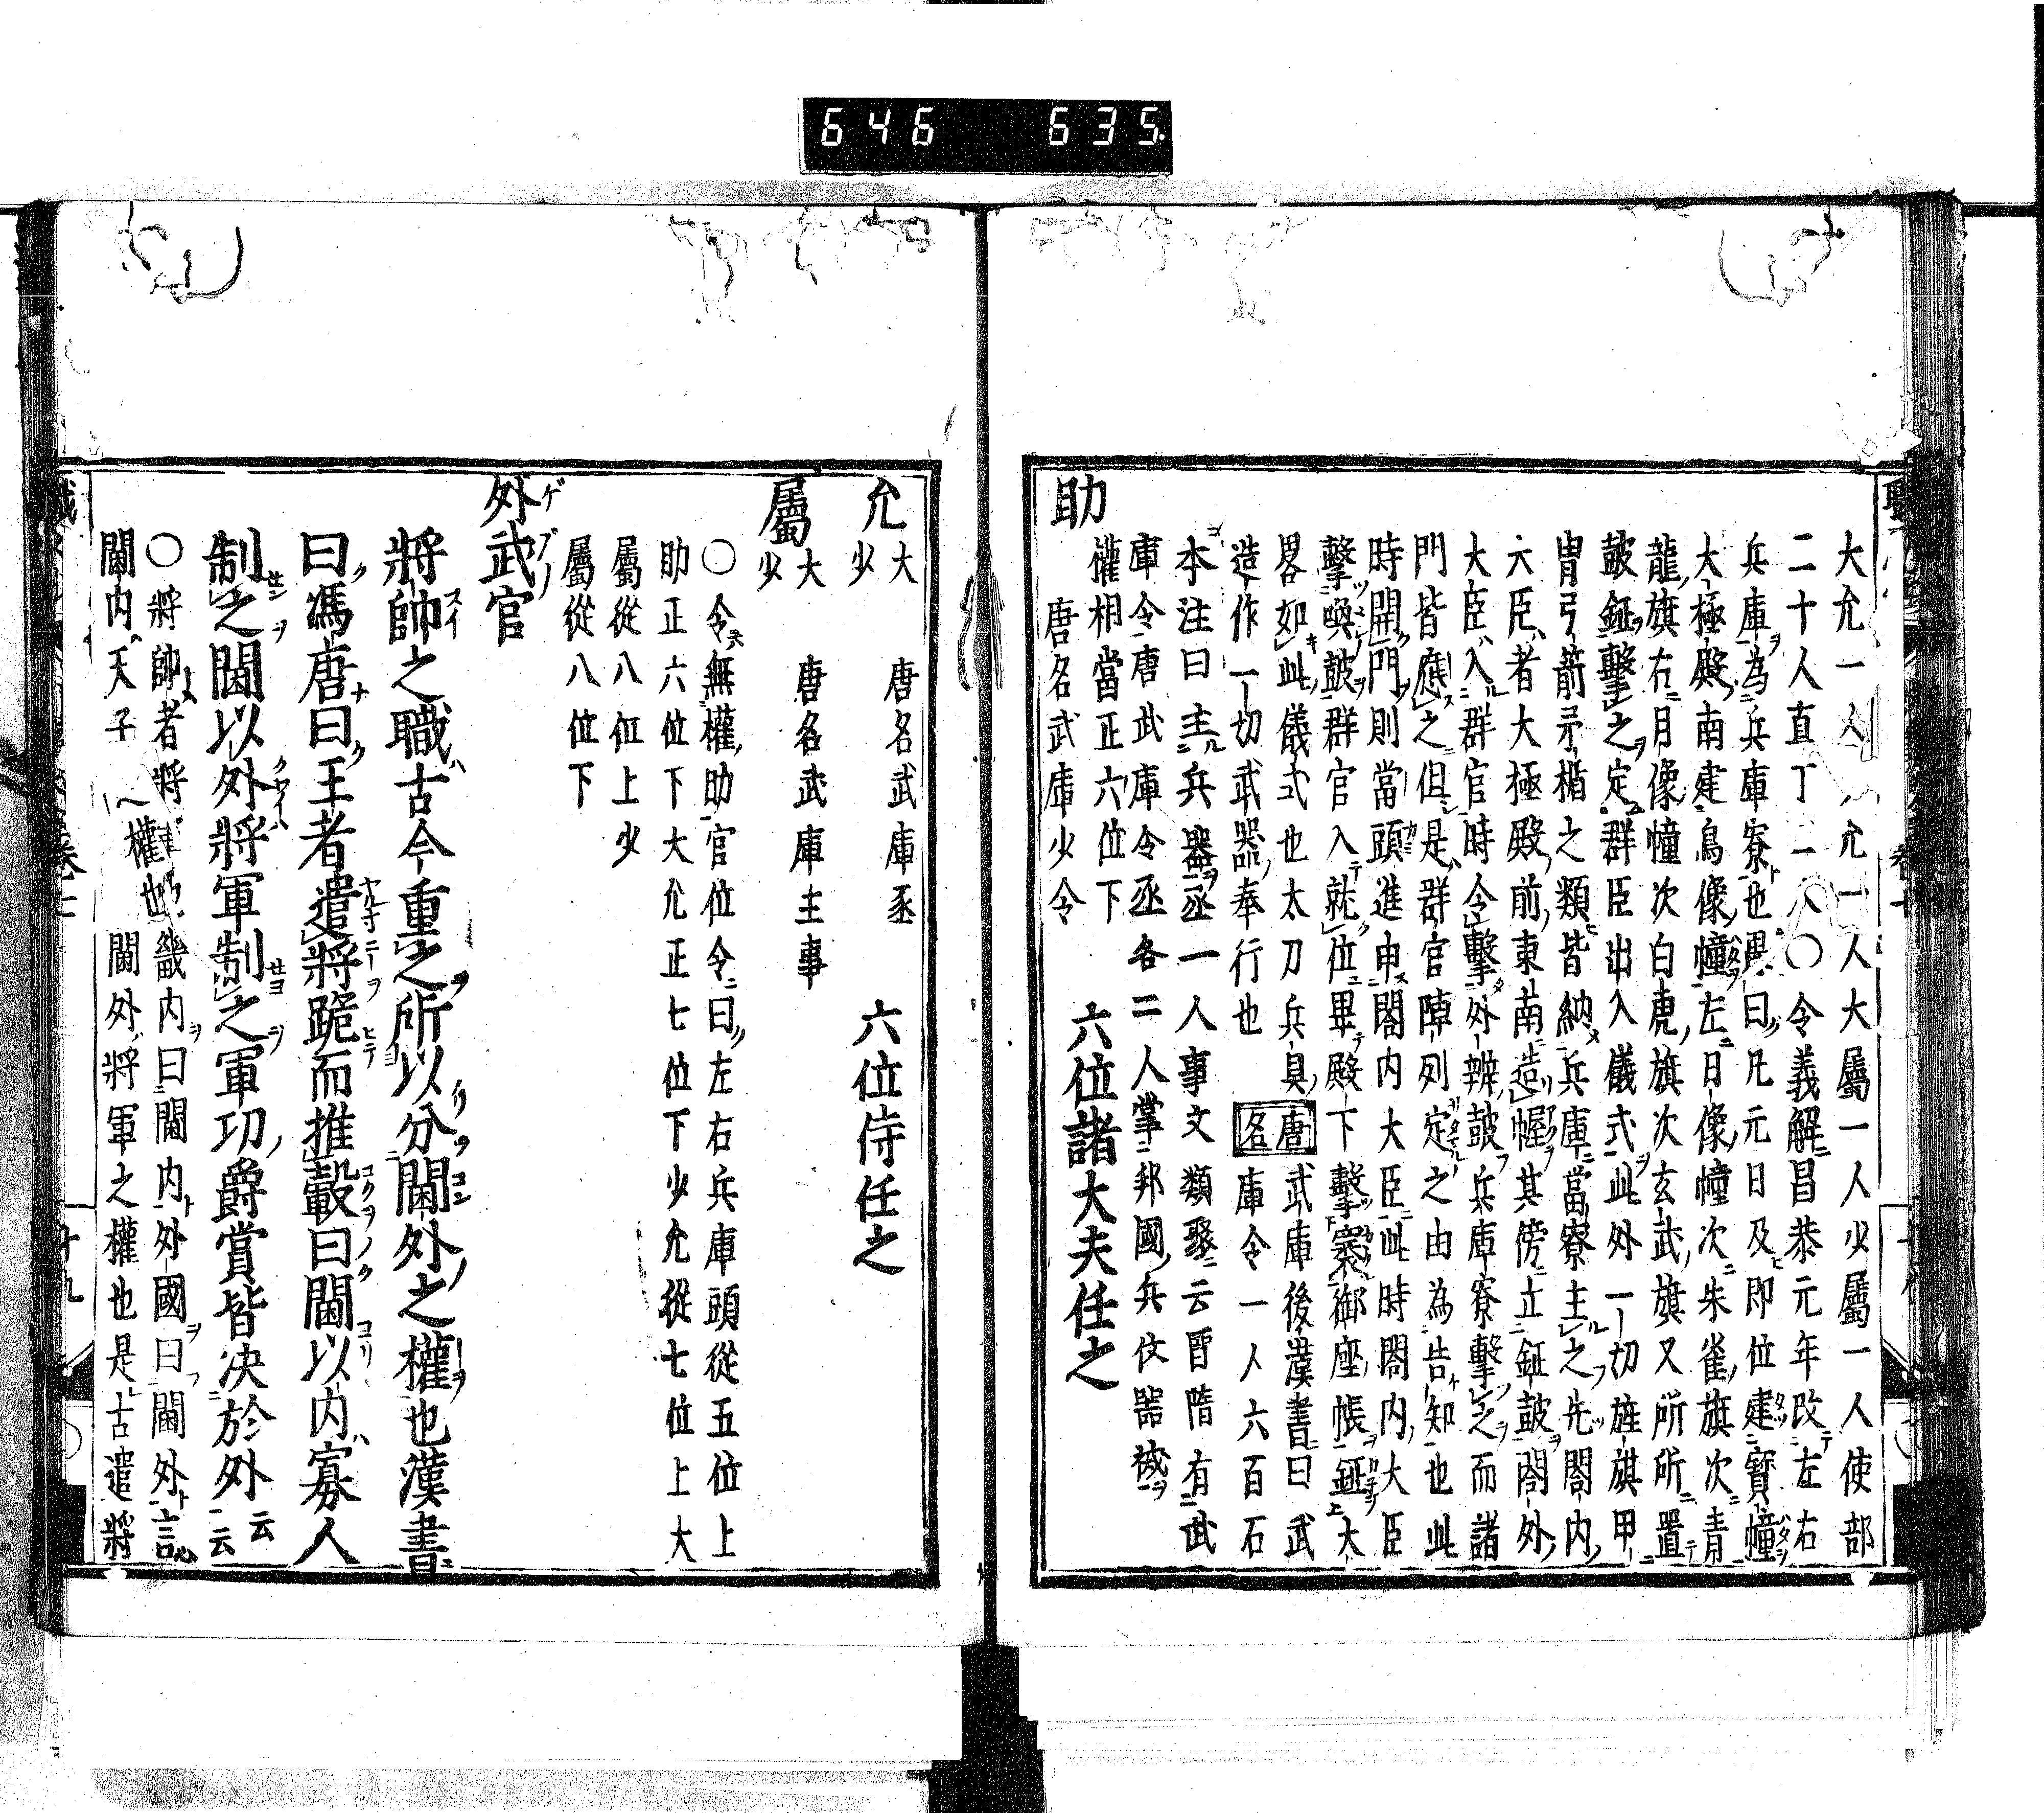 646 635.
大允一人少允一人大屬一人少屬一人使部
二十人直丁二人〇令義解昌泰元年改左右
兵庫為兵庫寮也愚曰凡元日及即位建寶幢
大極殿南建鳥像幢左日像幢次朱雀旗次青
龍旗右月像幢次白虎旗次玄武旗又所所置
鼓鉦擊之定群臣出入儀式此外一切旌旗甲
冑弓箭矛楯之類皆納兵庫當寮主之先閤内
大臣者大極殿前東南造幄其傍立鉦鼓閤外
大臣入群官時令擊外辨鼓兵庫寮擊之而諸
門皆應之但是群官陣列定之由為告知也此
時開門則當頭進申閤内大臣此時閤内大臣
擊喚鼓群官入就位畢殿下擊褰御座帳鉦大
畧如此儀式也太刀兵具唐名武庫後漢書曰武
造作一切武器奉行也庫令一人六百石
本注曰主兵器丞一人事文類聚云晉隋有武
庫令唐武庫令丞各二人掌邦國兵仗器械
權相當正六位下
助 唐名武庫少令 六位諸大夫任之
允 大少 唐名武庫丞 六位侍任之
屬 大少 唐名武庫主事
〇令無權助官位令曰左右兵庫頭從五位上
助正六位下大允正七位下少允從七位上大
屬從八位上少
屬從八位下
外武官
將帥之職古今重之所以分閫外之權也漢書
曰馮唐曰王者遣將跪而推轂曰閫以内寡人
制之閫以外將軍制之軍功爵賞皆决於外云云
〇將帥者將軍也畿内曰閫内外國曰閫外言心
閫内天子 權也閫外將軍之權也是古遣將